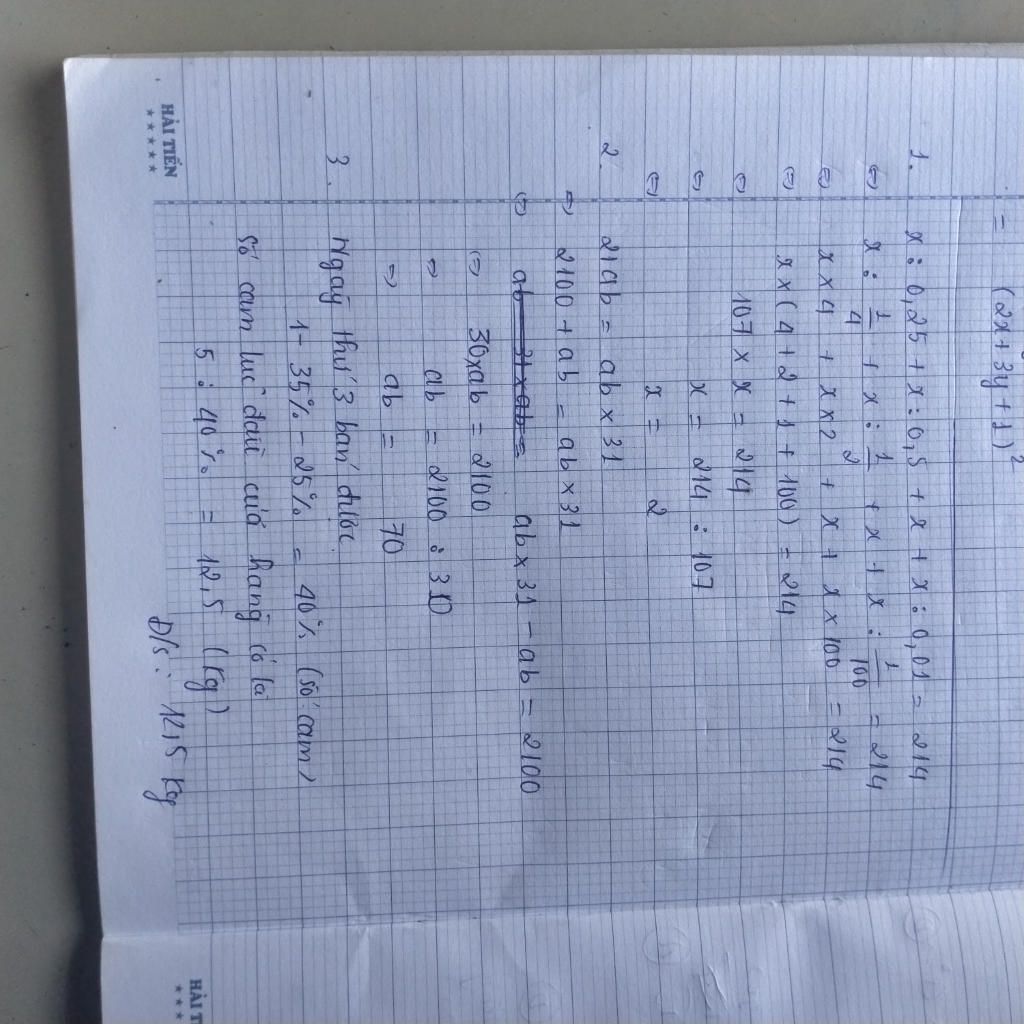 = (2x+3y+1)²
1. x : 0,25 + x : 0,5 + x + x : 0,01 = 214
⇔ x : 1/4 + x : 1/2 + x + x : 1/100 = 214
⇔ x × 4 + x × 2 + x + x × 100 = 214
⇔ x × (4 + 2 + 1 + 100) = 214
⇔ 107 × x = 214
⇔ x = 214 : 107
⇔ x = 2
2. 21ab = ab × 31
⇒ 2100 + ab = ab × 31
⇔ ab × 31 - ab = 2100
⇔ 30×ab = 2100
⇒ ab = 2100 : 30
⇒ ab = 70
3. Ngày thứ 3 bán được
1 - 35% - 25% = 40% (số cam)
Số cam lúc đầu cửa hàng có là
5 : 40% = 12,5 (kg)
Đ/s: 12,5 kg
HẢI TIẾN
HẢI T